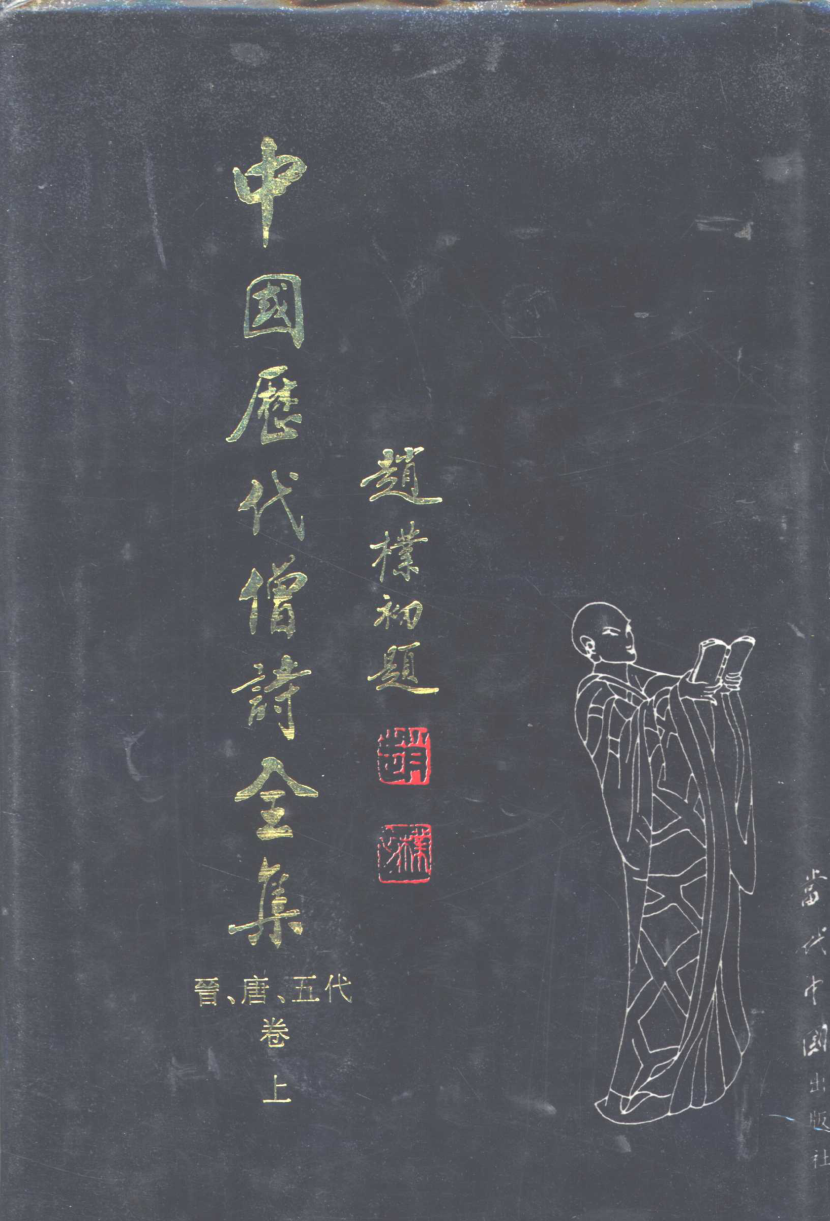 中國歷代僧詩全集
晉、唐、五代
卷
上
趙樸初題
當代中國出版社